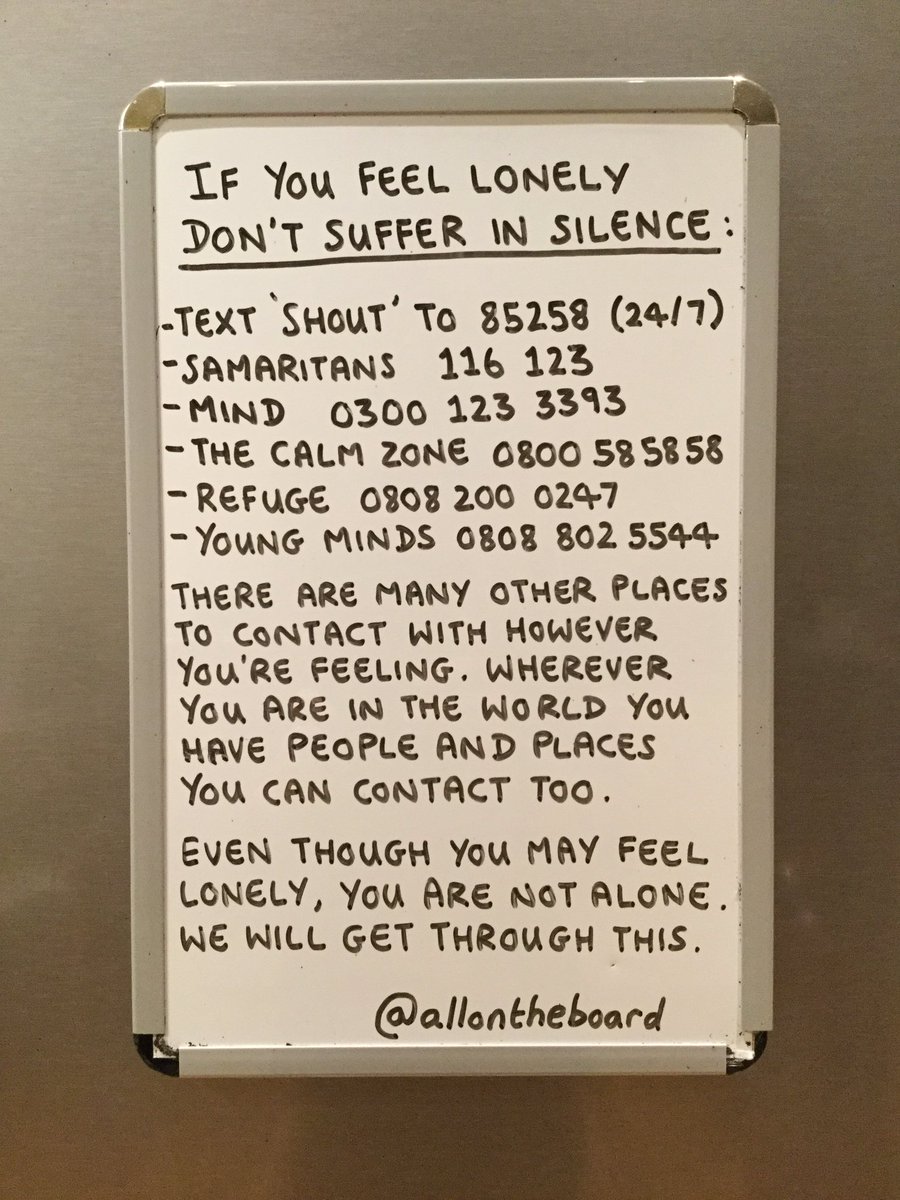 IF YOU FEEL LONELY
DON'T SUFFER IN SILENCE:
-TEXT 'SHOUT' TO 85258 (24/7)
-SAMARITANS 116 123
-MIND 0300 123 3393
-THE CALM ZONE 0800 58 58 58
-REFUGE 0808 200 0247
-YOUNG MINDS 0808 802 5544
THERE ARE MANY OTHER PLACES
TO CONTACT WITH HOWEVER
YOU'RE FEELING. WHEREVER
YOU ARE IN THE WORLD YOU
HAVE PEOPLE AND PLACES
YOU CAN CONTACT TOO.
EVEN THOUGH YOU MAY FEEL
LONELY, YOU ARE NOT ALONE.
WE WILL GET THROUGH THIS.
@allontheboard